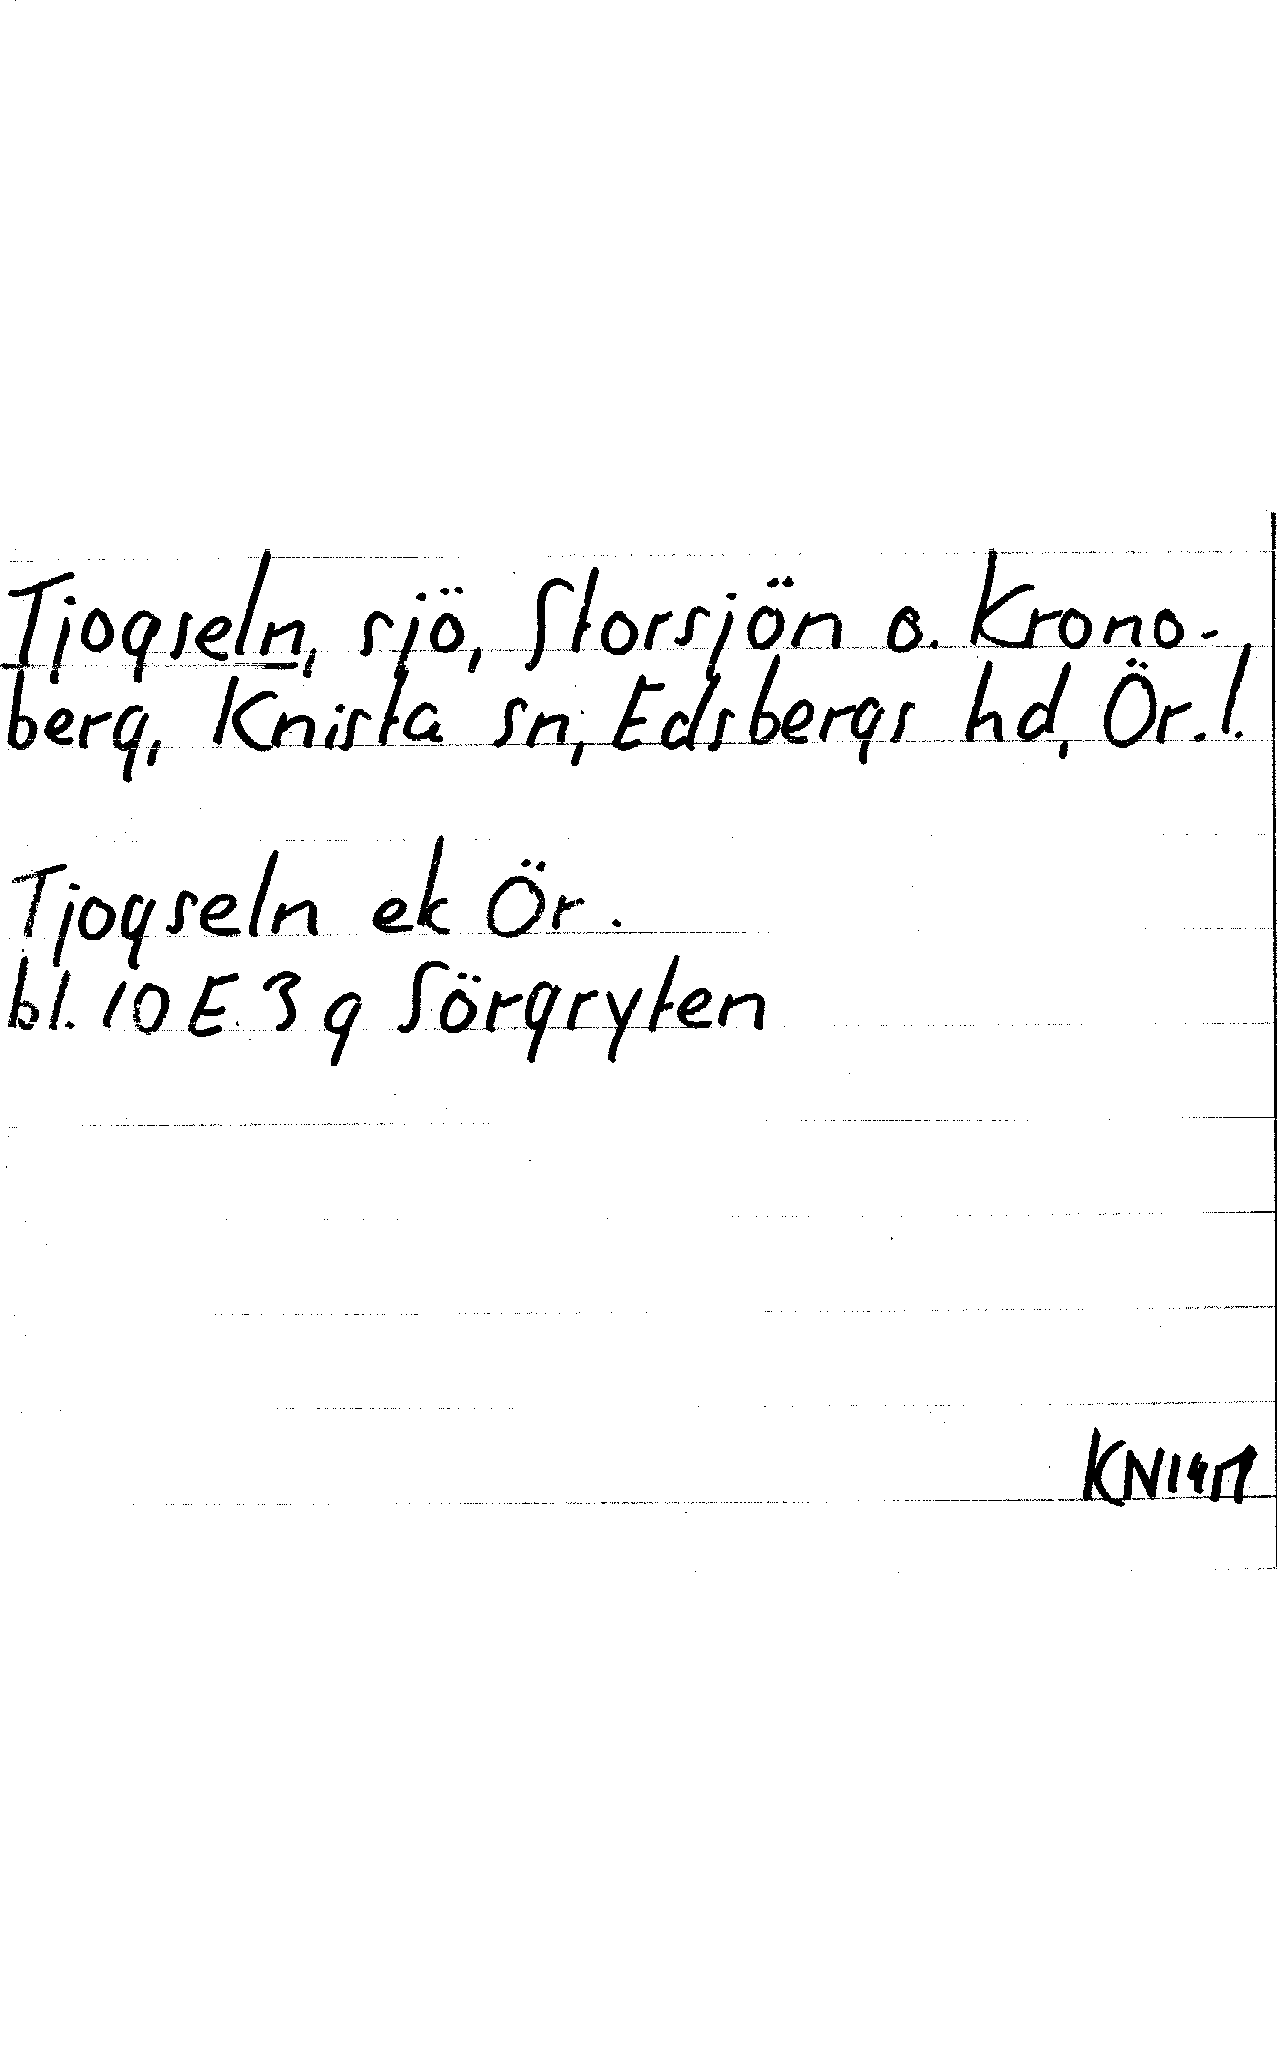 Tjogseln, sjö, Storsjön o. Krono-
berg, Knista sn, Edsbergs hd, Ör. l.
Tjogseln ek Ör.
bl. 10 E. 3 g Sörgryten